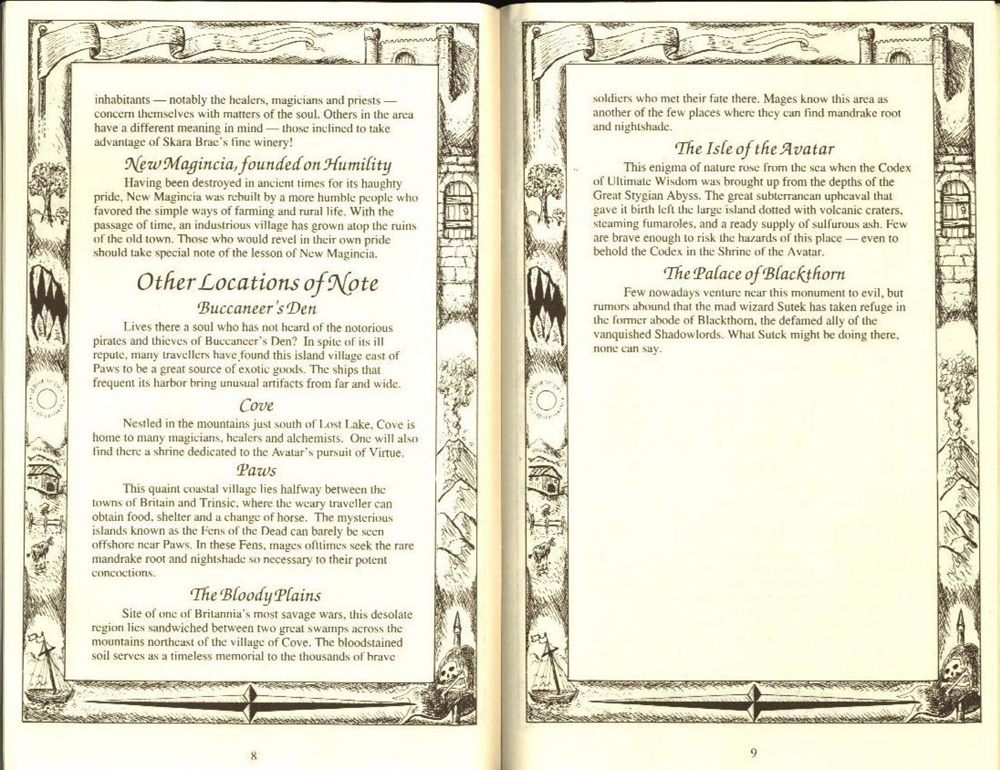 inhabitants — notably the healers, magicians and priests —
concern themselves with matters of the soul. Others in the area
have a different meaning in mind — those inclined to take
advantage of Skara Brae's fine winery!
New Magincia, founded on Humility
Having been destroyed in ancient times for its haughty
pride, New Magincia was rebuilt by a more humble people who
favored the simple ways of farming and rural life. With the
passage of time, an industrious village has grown atop the ruins
of the old town. Those who would revel in their own pride
should take special note of the lesson of New Magincia.
Other Locations of Note
Buccaneer's Den
Lives there a soul who has not heard of the notorious
pirates and thieves of Buccaneer's Den? In spite of its ill
repute, many travellers have found this island village east of
Paws to be a great source of exotic goods. The ships that
frequent its harbor bring unusual artifacts from far and wide.
Cove
Nestled in the mountains just south of Lost Lake, Cove is
home to many magicians, healers and alchemists. One will also
find there a shrine dedicated to the Avatar's pursuit of Virtue.
Paws
This quaint coastal village lies halfway between the
towns of Britain and Trinsic, where the weary traveller can
obtain food, shelter and a change of horse. The mysterious
islands known as the Fens of the Dead can barely be seen
offshore near Paws. In these Fens, mages ofttimes seek the rare
mandrake root and nightshade so necessary to their potent
concoctions.
The Bloody Plains
Site of one of Britannia's most savage wars, this desolate
region lies sandwiched between two great swamps across the
mountains northeast of the village of Cove. The bloodstained
soil serves as a timeless memorial to the thousands of brave
8
soldiers who met their fate there. Mages know this area as
another of the few places where they can find mandrake root
and nightshade.
The Isle of the Avatar
This enigma of nature rose from the sea when the Codex
of Ultimate Wisdom was brought up from the depths of the
Great Stygian Abyss. The great subterranean upheaval that
gave it birth left the large island dotted with volcanic craters,
steaming fumaroles, and a ready supply of sulfurous ash. Few
are brave enough to risk the hazards of this place — even to
behold the Codex in the Shrine of the Avatar.
The Palace of Blackthorn
Few nowadays venture near this monument to evil, but
rumors abound that the mad wizard Sutek has taken refuge in
the former abode of Blackthorn, the defamed ally of the
vanquished Shadowlords. What Sutek might be doing there,
none can say.
9